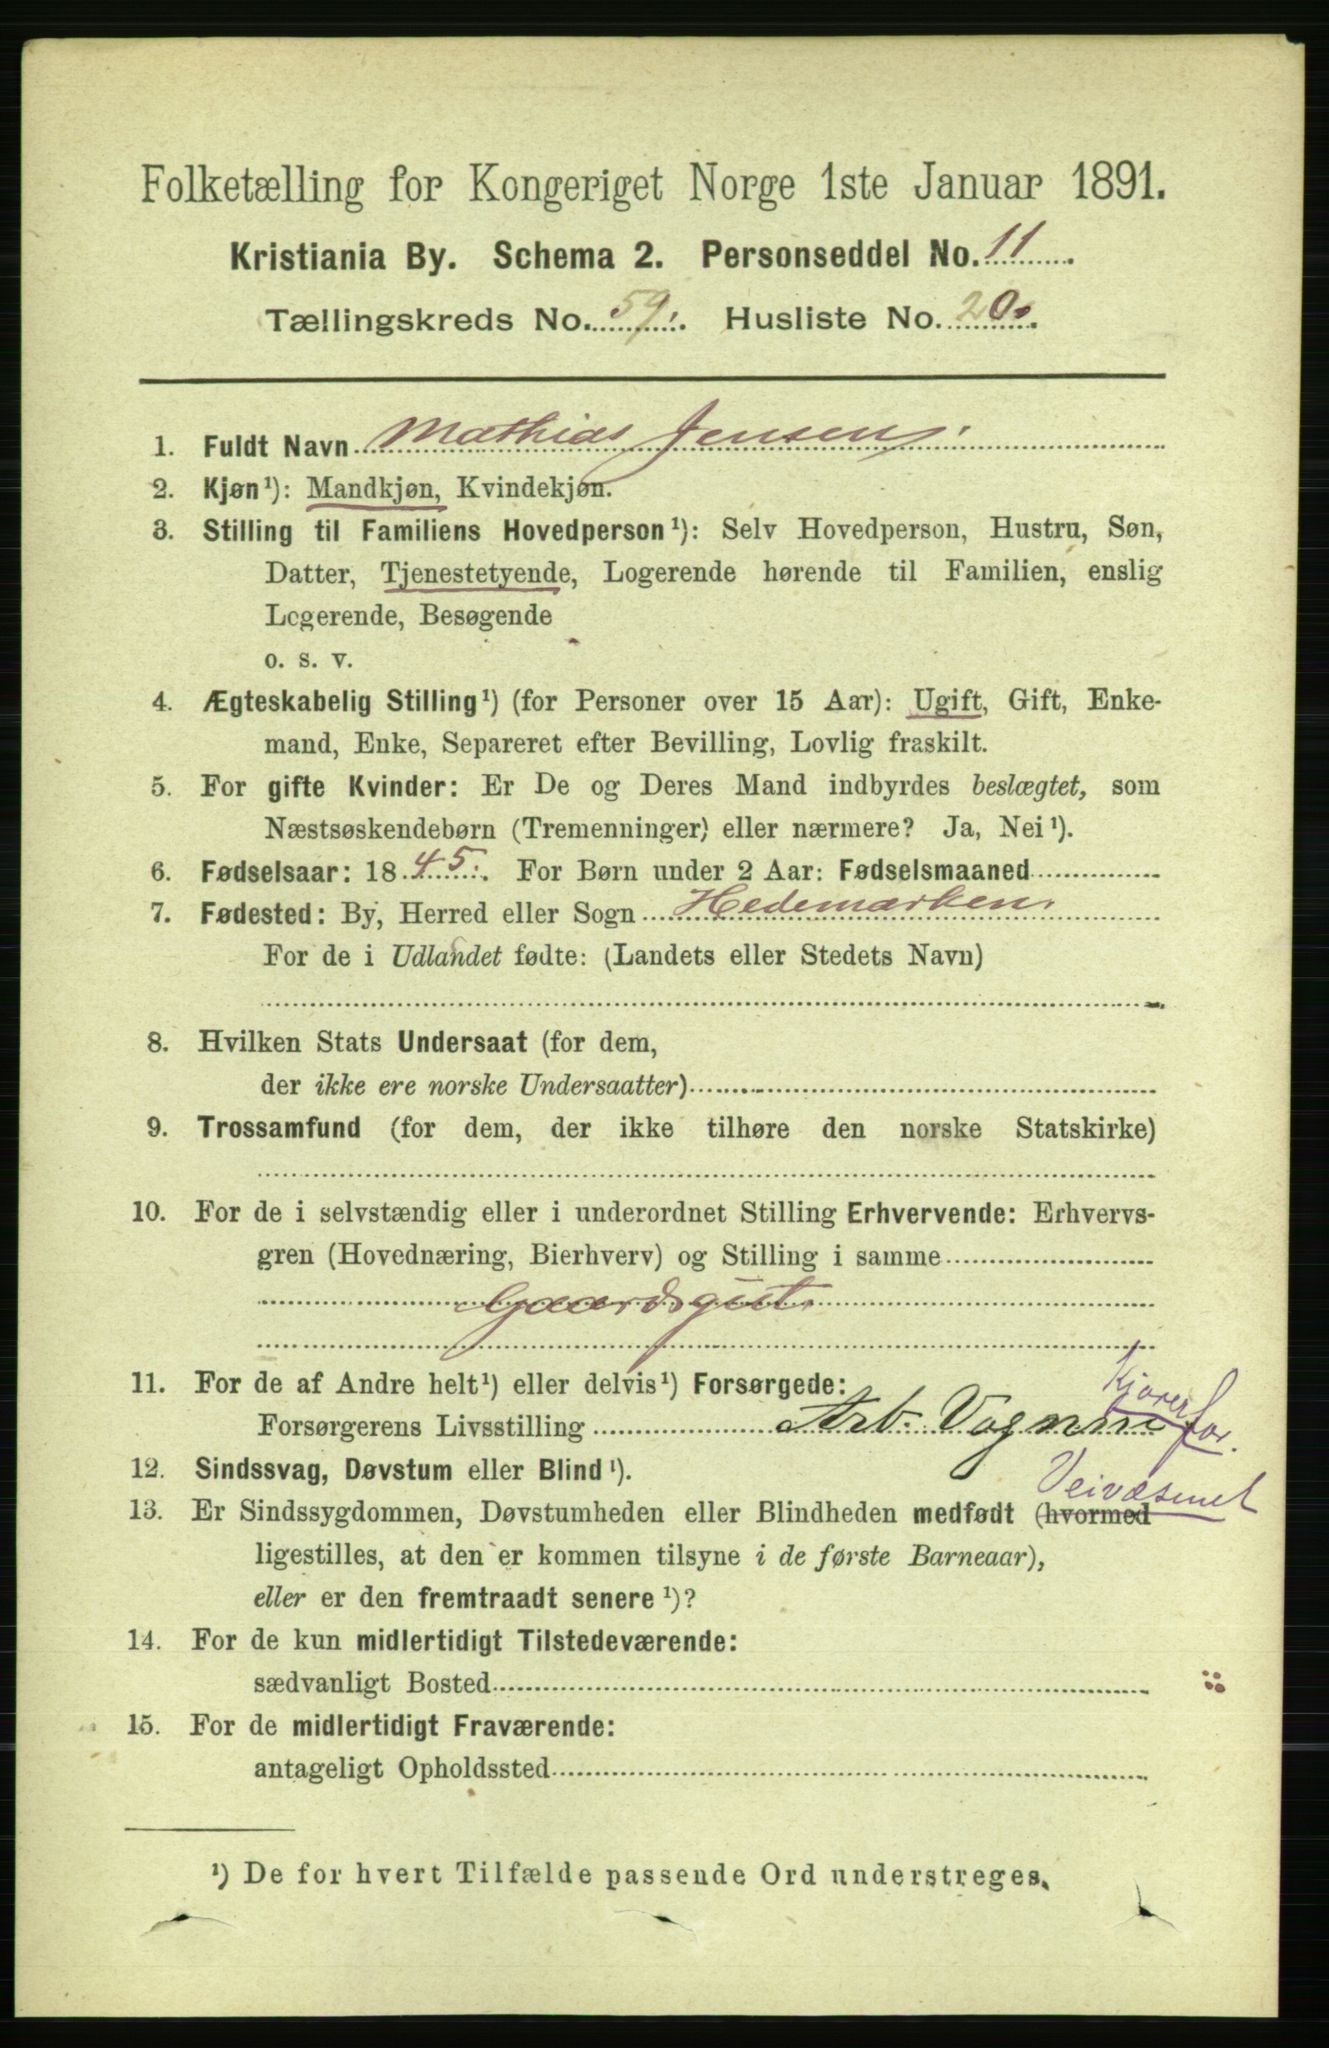 Folketælling for Kongeriget Norge 1ste Januar 1891.
Kristiania By. Schema 2. Personseddel No. 11
Tællingskreds No. 59. Husliste No. 20.
1. Fuldt Navn Mathias Jensen.
2. Kjøn¹): Mandkjøn, Kvindekjøn.
3. Stilling til Familiens Hovedperson¹): Selv Hovedperson, Hustru, Søn,
Datter, Tjenestetyende, Logerende hørende til Familien, enslig
Logerende, Besøgende
o. s. v.
4. Ægteskabelig Stilling¹) (for Personer over 15 Aar): Ugift, Gift, Enke-
mand, Enke, Separeret efter Bevilling, Lovlig fraskilt.
5. For gifte Kvinder: Er De og Deres Mand indbyrdes beslægtet, som
Næstsøskendebørn (Tremenninger) eller nærmere? Ja, Nei¹).
6. Fødselsaar: 1845. For Børn under 2 Aar: Fødselsmaaned
7. Fødested: By, Herred eller Sogn Hedemarken.
For de i Udlandet fødte: (Landets eller Stedets Navn)
8. Hvilken Stats Undersaat (for dem,
der ikke ere norske Undersaatter)
9. Trossamfund (for dem, der ikke tilhøre den norske Statskirke)
10. For de i selvstændig eller i underordnet Stilling Erhvervende: Erhvervs-
gren (Hovednæring, Bierhverv) og Stilling i samme
Gaardsgut.
11. For de af Andre helt¹) eller delvis¹) Forsørgede:
Kjører for
Forsørgerens Livsstilling Arb. Vognm
12. Sindssvag, Døvstum eller Blind¹).
Veivæsenet
13. Er Sindssygdommen, Døvstumheden eller Blindheden medfødt (hvormed
ligestilles, at den er kommen tilsyne i de første Barneaar),
eller er den fremtraadt senere¹)?
14. For de kun midlertidigt Tilstedeværende:
sædvanligt Bosted
15. For de midlertidigt Fraværende:
antageligt Opholdssted
¹) De for hvert Tilfælde passende Ord understreges.